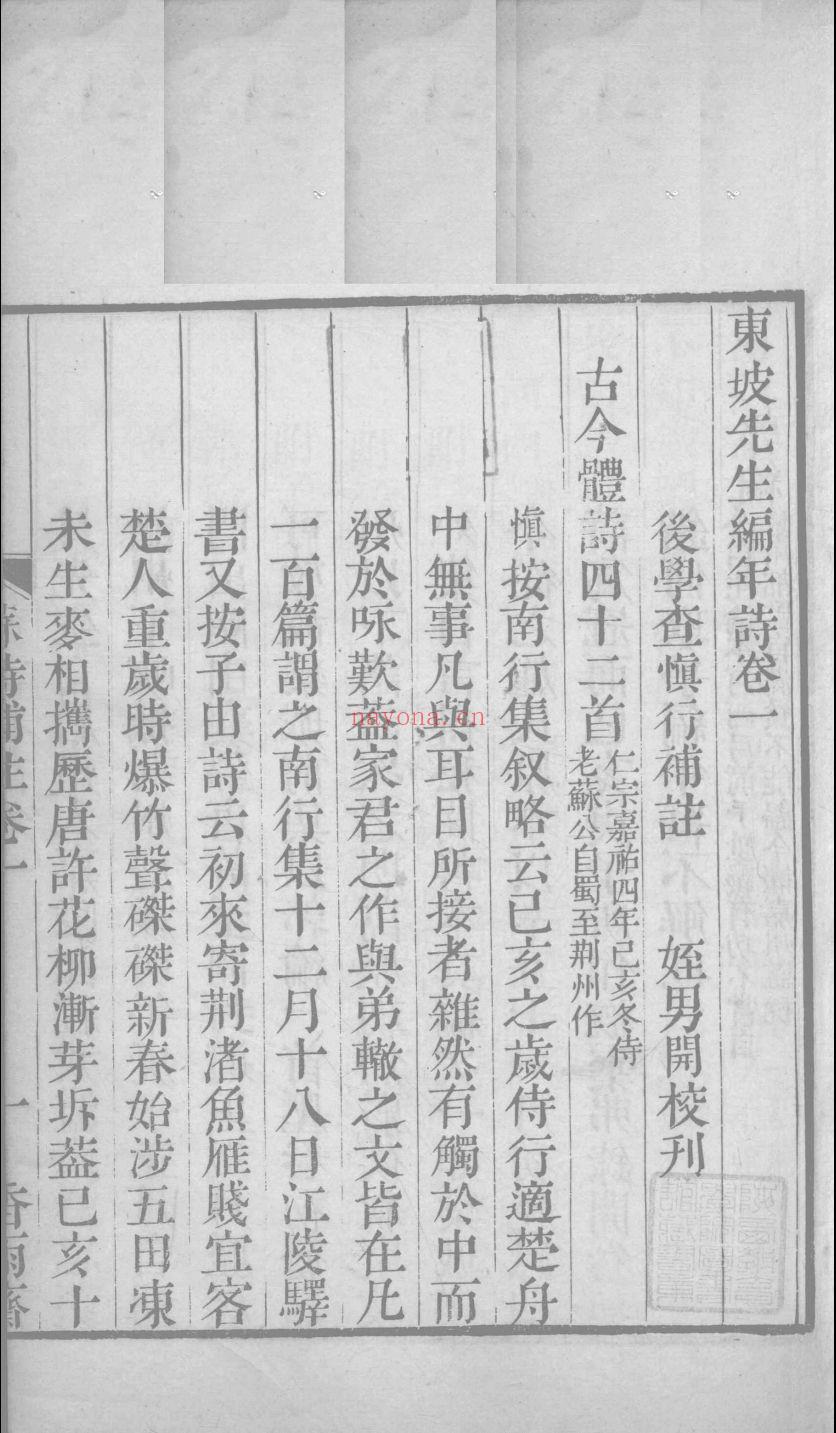 東坡先生編年詩卷一
後學查慎行補註 姪男開校刋
古今體詩四十二首
仁宗嘉祐四年己亥冬侍
老蘇公自蜀至荆州作
慎按南行集叙略云己亥之歲侍行適楚舟
中無事凡與耳目所接者雜然有觸於中而
發於咏歎葢家君之作與弟轍之文皆在凡
一百篇謂之南行集十二月十八日江陵驛
書又按子由詩云初來寄荆渚魚雁賤宜客
楚人重歲時爆竹聲磔磔新春始涉五田凍
未生麥相攜歷唐許花柳漸芽坼葢已亥十
蘇詩補註卷一 一 香雨齋
nayona.cn